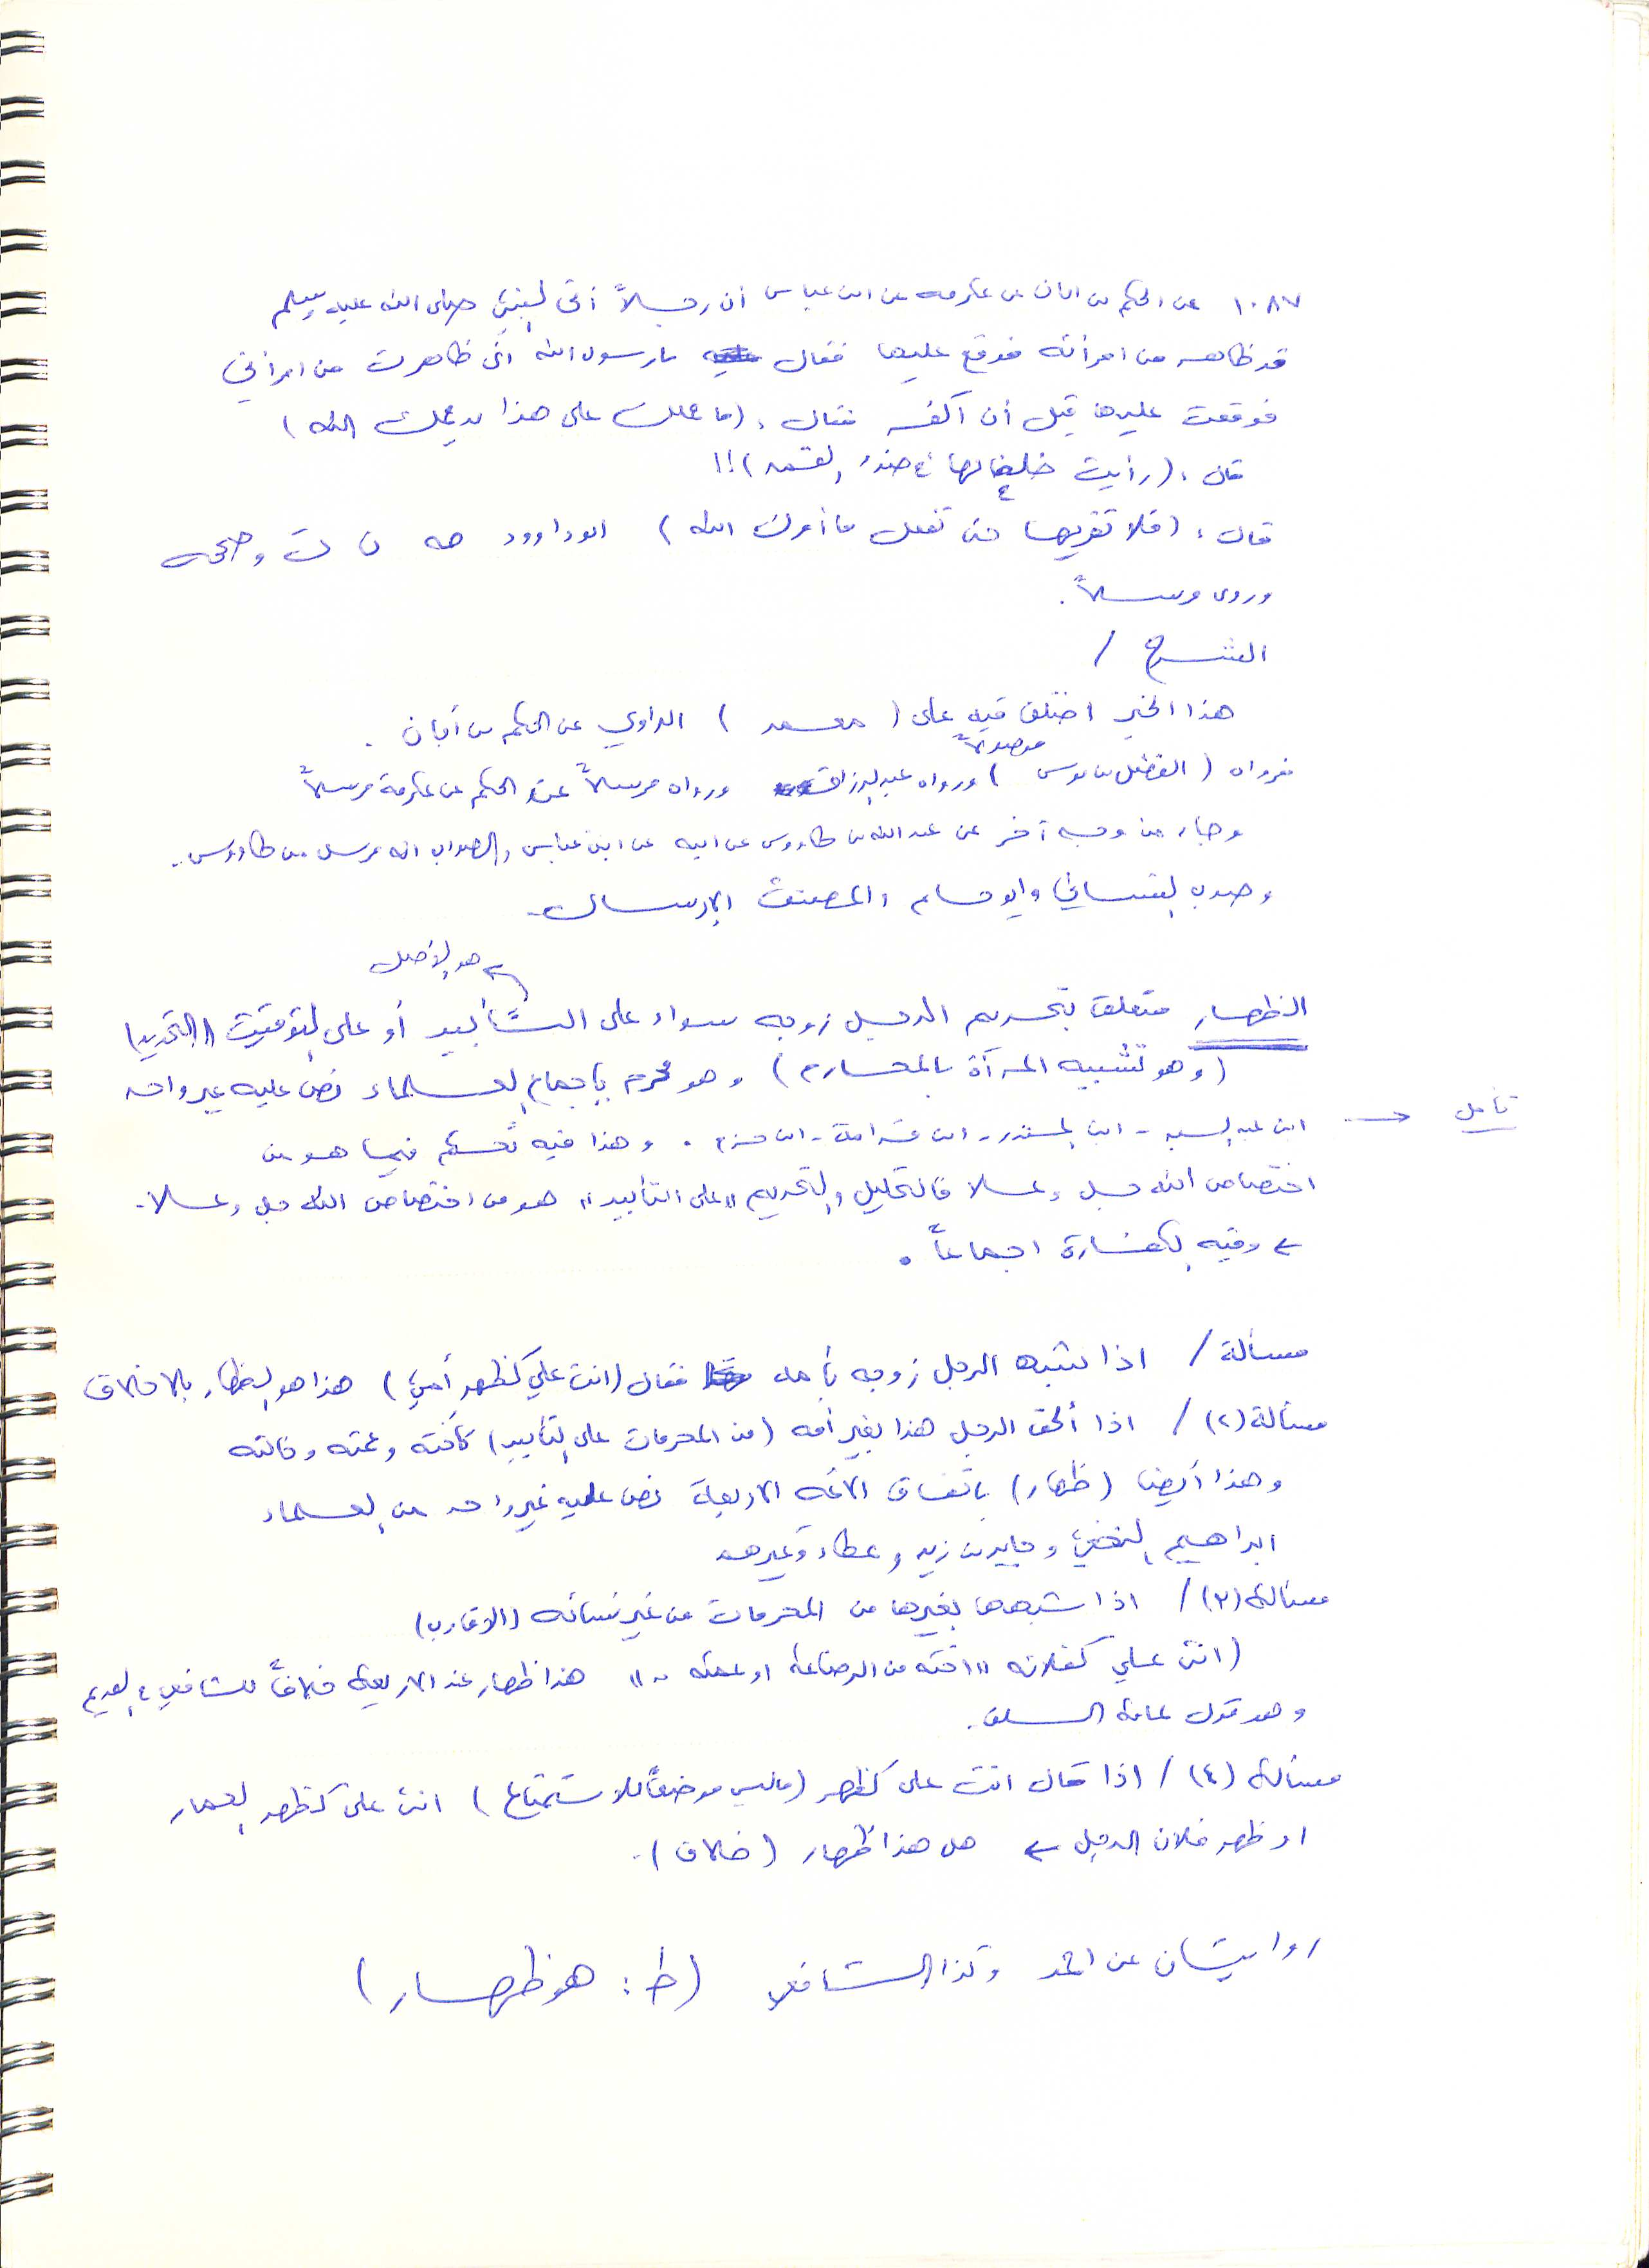 ١٠٨٧ عن الحكم بن ابان عن عكرمه عن ابن عباس أن رجلاً أتى النبي صلى الله عليه وسلم
قد ظاهر من امرأته فوقع عليها فقال يا رسول الله اني ظاهرت من امرأتي
فوقعت عليها قبل أن أكفر فقال : (ما حملك على هذا يرحمك الله)
قال : (رأيت خلخالها في ضوء القمر)!!
قال : (فلا تقربها حتى تفعل ما أمرك الله) ابو داوود هـ ن ت وصححه
وروى مرسلاً .
الشرح /
هذا الخبر اختلف فيه على (معمر) الراوي عن الحكم بن أبان .
موصولاً
فرواه (الفضل بن موسى) ورواه عبد الرزاق ورواه مرسلاً عن الحكم عن عكرمة مرسلاً
وجاء من وجه آخر عن عبد الله بن طاووس عن ابيه عن ابن عباس والصواب انه مرسل من طاووس .
وصوب النسائي وابو حاتم والمصنف الارسال .
هو الأصل
الظهار متعلق بتحريم الرجل زوجه سواء على التأبيد أو على التوقيت (التحديد)
(وهو تشبيه المرآة بالمحارم) وهو محرم بإجماع العلماء نص عليه غير واحد
تأمل ← ابن عبد البر - ابن المنذر - ابن قدامة - ابن حزم . وهذا فيه تحكم فيما هو من
اختصاص الله جل وعلا فالتحليل والتحريم "على التأبيد" هو من اختصاص الله جل وعلا .
← وفيه الكفارة اجماعاً .
مسألة / اذا شبه الرجل زوجه بأمه فقال (انت علي كظهر أمي) هذا هو الظهار بلا خلاف
مسألة (٢) / اذا ألحق الرجل هذا بغير أمه (من المحرمات على التأبيد) كأخته وعمته وخالته
وهذا أيضا (ظهار) باتفاق الائمه الاربعة نص عليه غير واحد من العلماء
ابراهيم النخعي وجابر بن زيد وعطاء وغيرهم
مسألة (٣) / اذا شبهها بغيرها من المحرمات من غير نسائه (الاقارب)
(انت علي كفلانه "اخته من الرضاعة او عمته .." هذا ظهار عند الاربعة خلافاً للشافعي في القديم
وهو قول عامة السلف .
مسألة (٤) / اذا قال انت علي كظهر (ما ليس موضعاً للاستمتاع) انت علي كظهر الحمار
او ظهر فلان الرجل ← هل هذا ظهار (خلاف) .
روايتان عن احمد وكذا الشافعي (ط : هو ظهار)